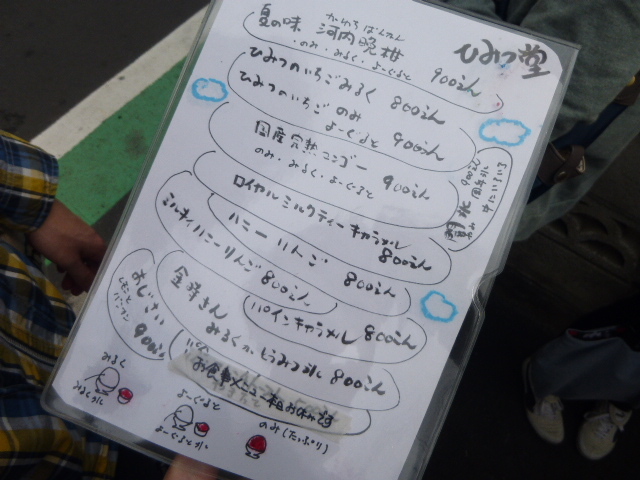 ひみつ堂
夏の味 河内晩柑 900えん
かわちばんかん
・のみ・みるく・よーぐると
ひみつのいちごみるく 800えん
ひみつのいちご のみ
よーぐると 900えん
国産完熟マンゴー 900えん
のみ・みるく・よーぐると
ロイヤルミルクティーキャラメル 800えん
ハニーリンゴ 800えん
ミルキィハニーリンゴ 800えん
パインキャラメル 800えん
金時さん
みるくかとうみつ氷 800えん
あじさい
900えん
お食事メニューお休みです
みるく
みるく氷
よーぐると
よーぐると氷
のみ(たっぷり)